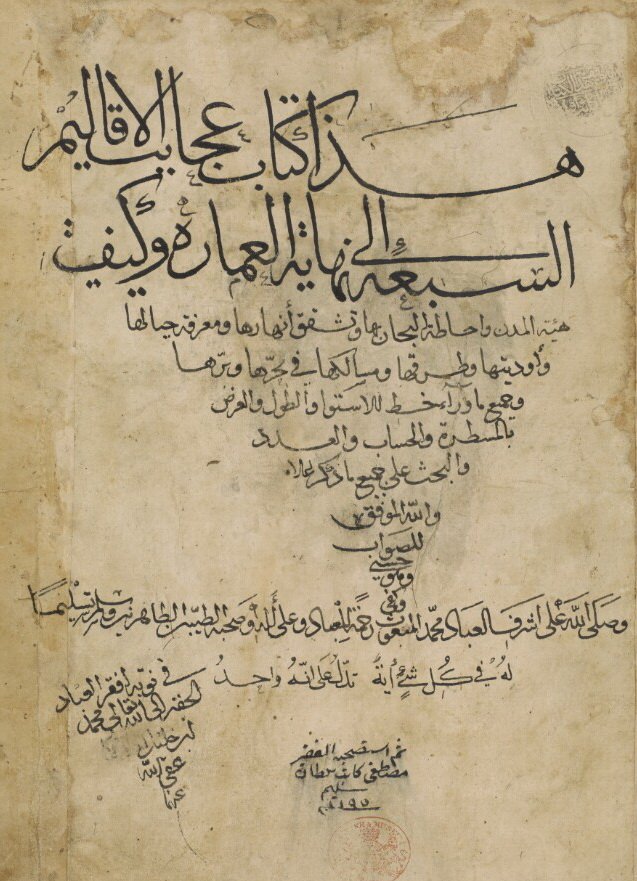 هذا كتاب عجايب الاقاليم
السبعة الى نهاية العمارة وكيف
هيئة المدن واحاطة البحار بها وتشقق أنهارها ومعرفة جبالها
وأوديتها وطرقها ومسالكها في بحرها وبرها
وجميع ماوراء خط الاستوا والطول والعرض
بالمسطرة والحساب والعدد
والبحث على جميع ما ذكر اعلاه
والله الموفق
للصواب
وهو حسبي
وكفى
وصلى الله على اشرف العباد محمد المبعوث رحمة للعباد وعلى أله وصحبه الطيبين الطاهرين وسلم تسليما
له في كل شيء أية تدل على انه واحد
في نوبة أفقر العباد
الحقير الى الله تعالى محمد
ابن
عفى الله
عنهما
الفقير
مصطفى كاتب سلطان
سليم